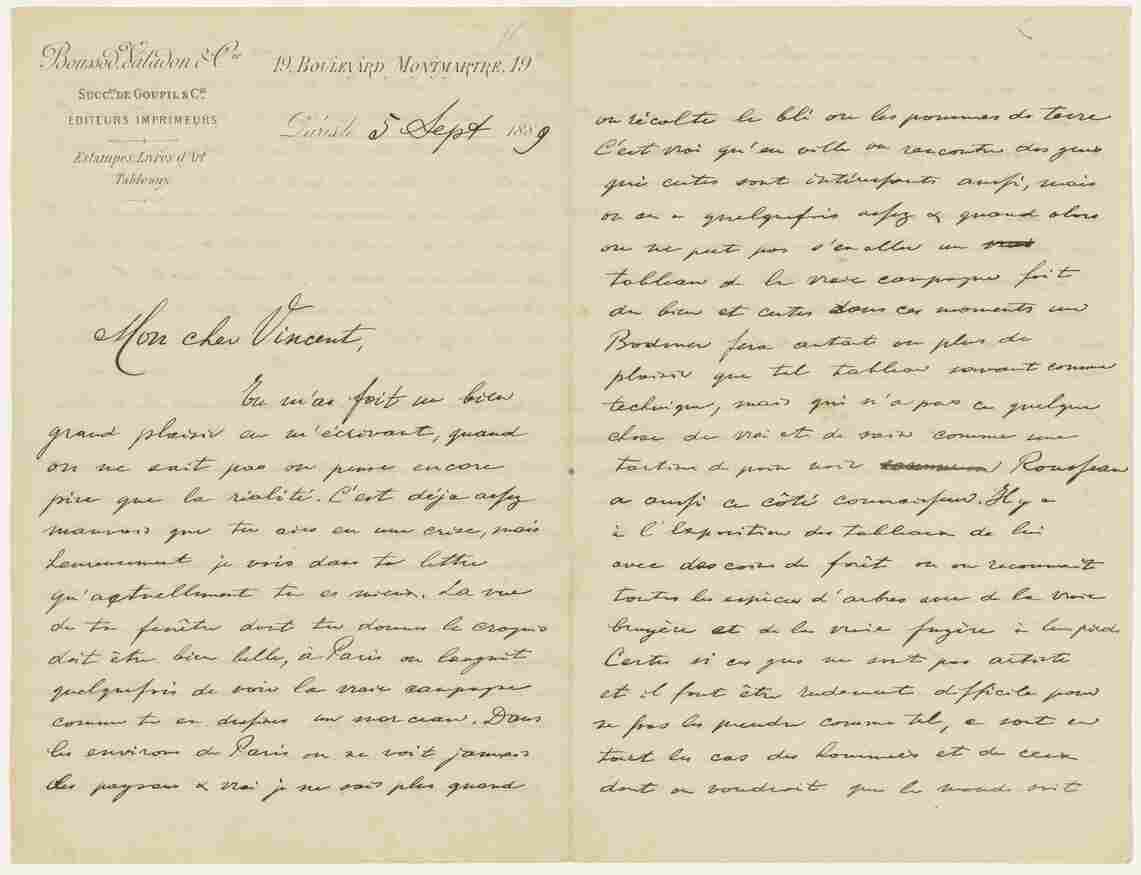 Boussod, Valadon & Cie
Succrs. de Goupil & Cie
ÉDITEURS IMPRIMEURS
Estampes, Livres d'Art
Tableaux
19, Boulevard Montmartre, 19
Paris, le 5 Sept 1889
Mon cher Vincent,
Tu m'as fait un bien
grand plaisir en m'écrivant, quand
on ne sait pas on pense encore
pire que la réalité. C'est déja assez
mauvais que tu aies eu une crise, mais
heureusement je vois dans ta lettre
qu'actuellement tu es mieux. La vue
de ta fenêtre dont tu donnes le croquis
doit être bien belle, à Paris on languit
quelquefois de voir la vraie campagne
comme tu en dessines un morceau. Dans
les environs de Paris on ne voit jamais
des paysans & vrai je ne sais plus quand
on récolte le blé ou les pommes de terre
C'est vrai qu'en ville on rencontre des gens
qui certes sont intéressants aussi, mais
on en a quelquefois assez & quand alors
on ne peut pas s'en aller un
tableau de la vraie campagne fait
du bien et certes dans ces moments un
Bodmer fera autant ou plus de
plaisir que tel tableau savant comme
technique, mais qui n'a pas ce quelque
chose de vrai et de sain comme une
tartine de pain noir Rousseau
a aussi ce côté connaisseur. Il y a
à l'Exposition des tableaux de lui
avec des coins de forêt où on reconnait
toutes les espèces d'arbres avec de la vraie
bruyère et de la vraie fugère à leur pieds
Certes si ces gens ne sont pas artiste
et il faut être rudement difficile pour
ne pas les prendre comme tel, ce sont en
tout les cas des hommes et de ceux
dont on voudrait que le monde soit